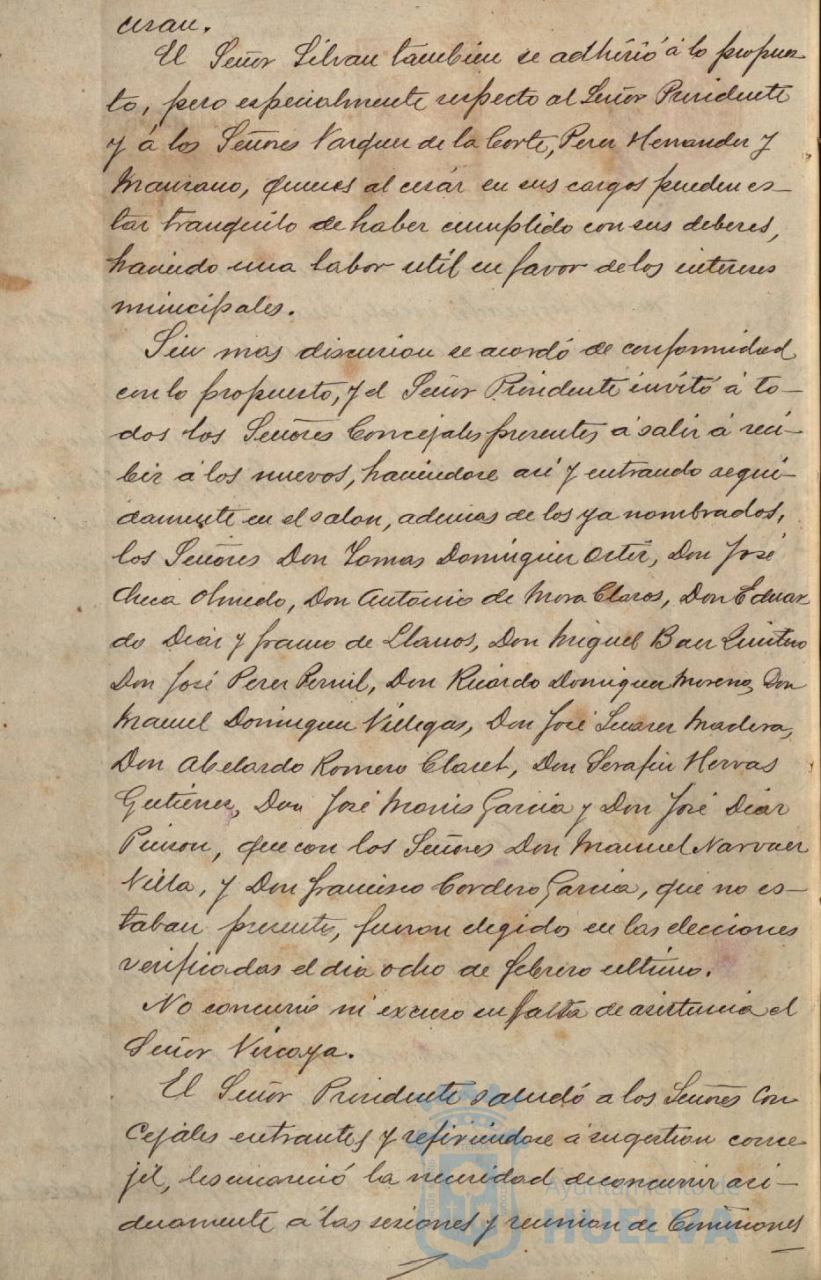 cesan.
El Señor Silvan tambien se adhirió á lo propues-
to, pero especialmente respecto al Señor Presidente
y á los Señores Vazquez de la Corte, Perez Hernandez y
Manzano, quienes al cesár en sus cargos pueden es-
tar tranquilo de haber cumplido con sus deberes,
haciendo una labor util en favor de los intereses
municipales.
Sin mas discusion se acordó de conformidad
con lo propuesto, y el Señor Presidente invitó á to-
dos los Señores Concejales presentes á salir á reci-
bir á los nuevos, haciendose asi y entrando segui-
damente en el salon, ademas de los ya nombrados,
los Señores Don Tomas Dominguez Ortiz, Don José
Checa Olmedo, Don Antonio de Mora Claros, Don Eduar
do Diaz y franco de Llanos, Don Miguel Baez Quintero
Don José Perez Pernil, Don Ricardo Dominguez Moreno, Don
Manuel Dominguez Villegas, Don José Suarez Madera,
Don Abelardo Romero Claret, Don Serafin Hervas
Gutierrez, Don José Monis Garcia y Don José Diaz
Pinzon, que con los Señores Don Manuel Narvaez
Villa, y Don francisco Cordero Garcia, que no es-
taban presentes, fueron elegidos en las elecciones
verificadas el dia ocho de febrero ultimo.
No concurrió ni excuso su falta de asistencia el
Señor Vizcaya.
El Señor Presidente saludó a los Señores Con
cejales entrantes y refiriendose á su gestion conce-
jil, les enunció la necesidad de concurrir asi-
duamente á las sesiones y reunion de Comisiones
Ayuntamiento de
HUELVA